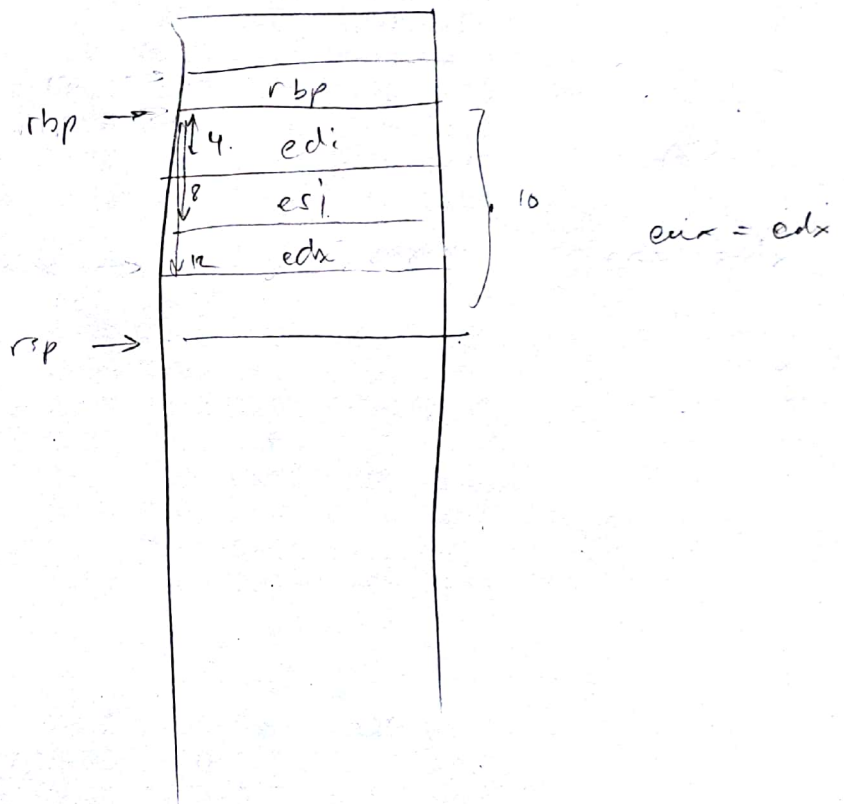 rbp
rbp →
4. edi
8 esi
10
12 edx
eax = edx
rsp →